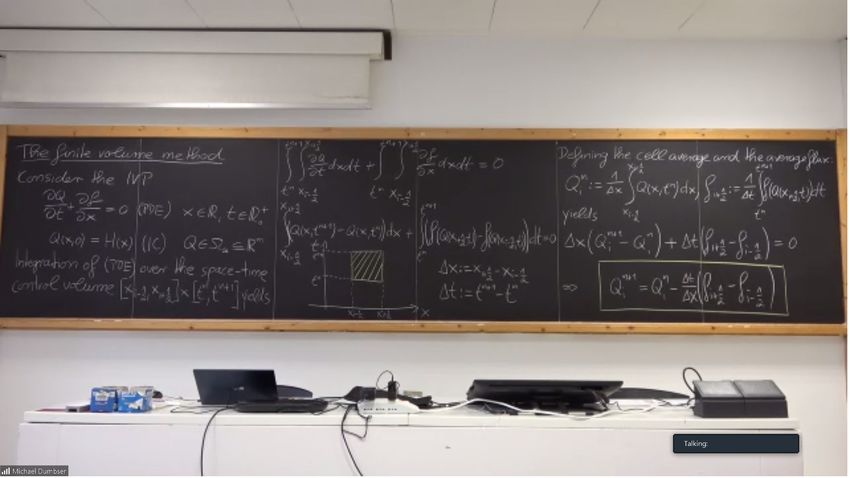 The finite volume method
Consider the IVP
∂Q/∂t + ∂f/∂x = 0 (PDE) x ∈ ℝ, t ∈ ℝ₀⁺
Q(x,0) = H(x) (IC) Q ∈ Ω_Q ⊆ ℝᵐ
Integration of (PDE) over the space-time
control volume [x_{i-1/2}, x_{i+1/2}] × [tⁿ, tⁿ⁺¹] yields
∫_{tⁿ}^{tⁿ⁺¹} ∫_{x_{i-1/2}}^{x_{i+1/2}} ∂Q/∂t dx dt + ∫_{tⁿ}^{tⁿ⁺¹} ∫_{x_{i-1/2}}^{x_{i+1/2}} ∂f/∂x dx dt = 0
∫_{x_{i-1/2}}^{x_{i+1/2}} (Q(x,tⁿ⁺¹) - Q(x,tⁿ)) dx + ∫_{tⁿ}^{tⁿ⁺¹} (f(Q(x_{i+1/2},t)) - f(Q(x_{i-1/2},t))) dt = 0
t
tⁿ⁺¹
tⁿ
x_{i-1/2} x_{i+1/2} x
Δx := x_{i+1/2} - x_{i-1/2}
Δt := tⁿ⁺¹ - tⁿ
Defining the cell average and the average flux:
Q_iⁿ := 1/Δx ∫_{x_{i-1/2}}^{x_{i+1/2}} Q(x,tⁿ) dx, f_{i+1/2} := 1/Δt ∫_{tⁿ}^{tⁿ⁺¹} f(Q(x_{i+1/2},t)) dt
yields
Δx (Q_iⁿ⁺¹ - Q_iⁿ) + Δt (f_{i+1/2} - f_{i-1/2}) = 0
⇒ Q_iⁿ⁺¹ = Q_iⁿ - Δt/Δx (f_{i+1/2} - f_{i-1/2})
Talking:
Michael Dumbser